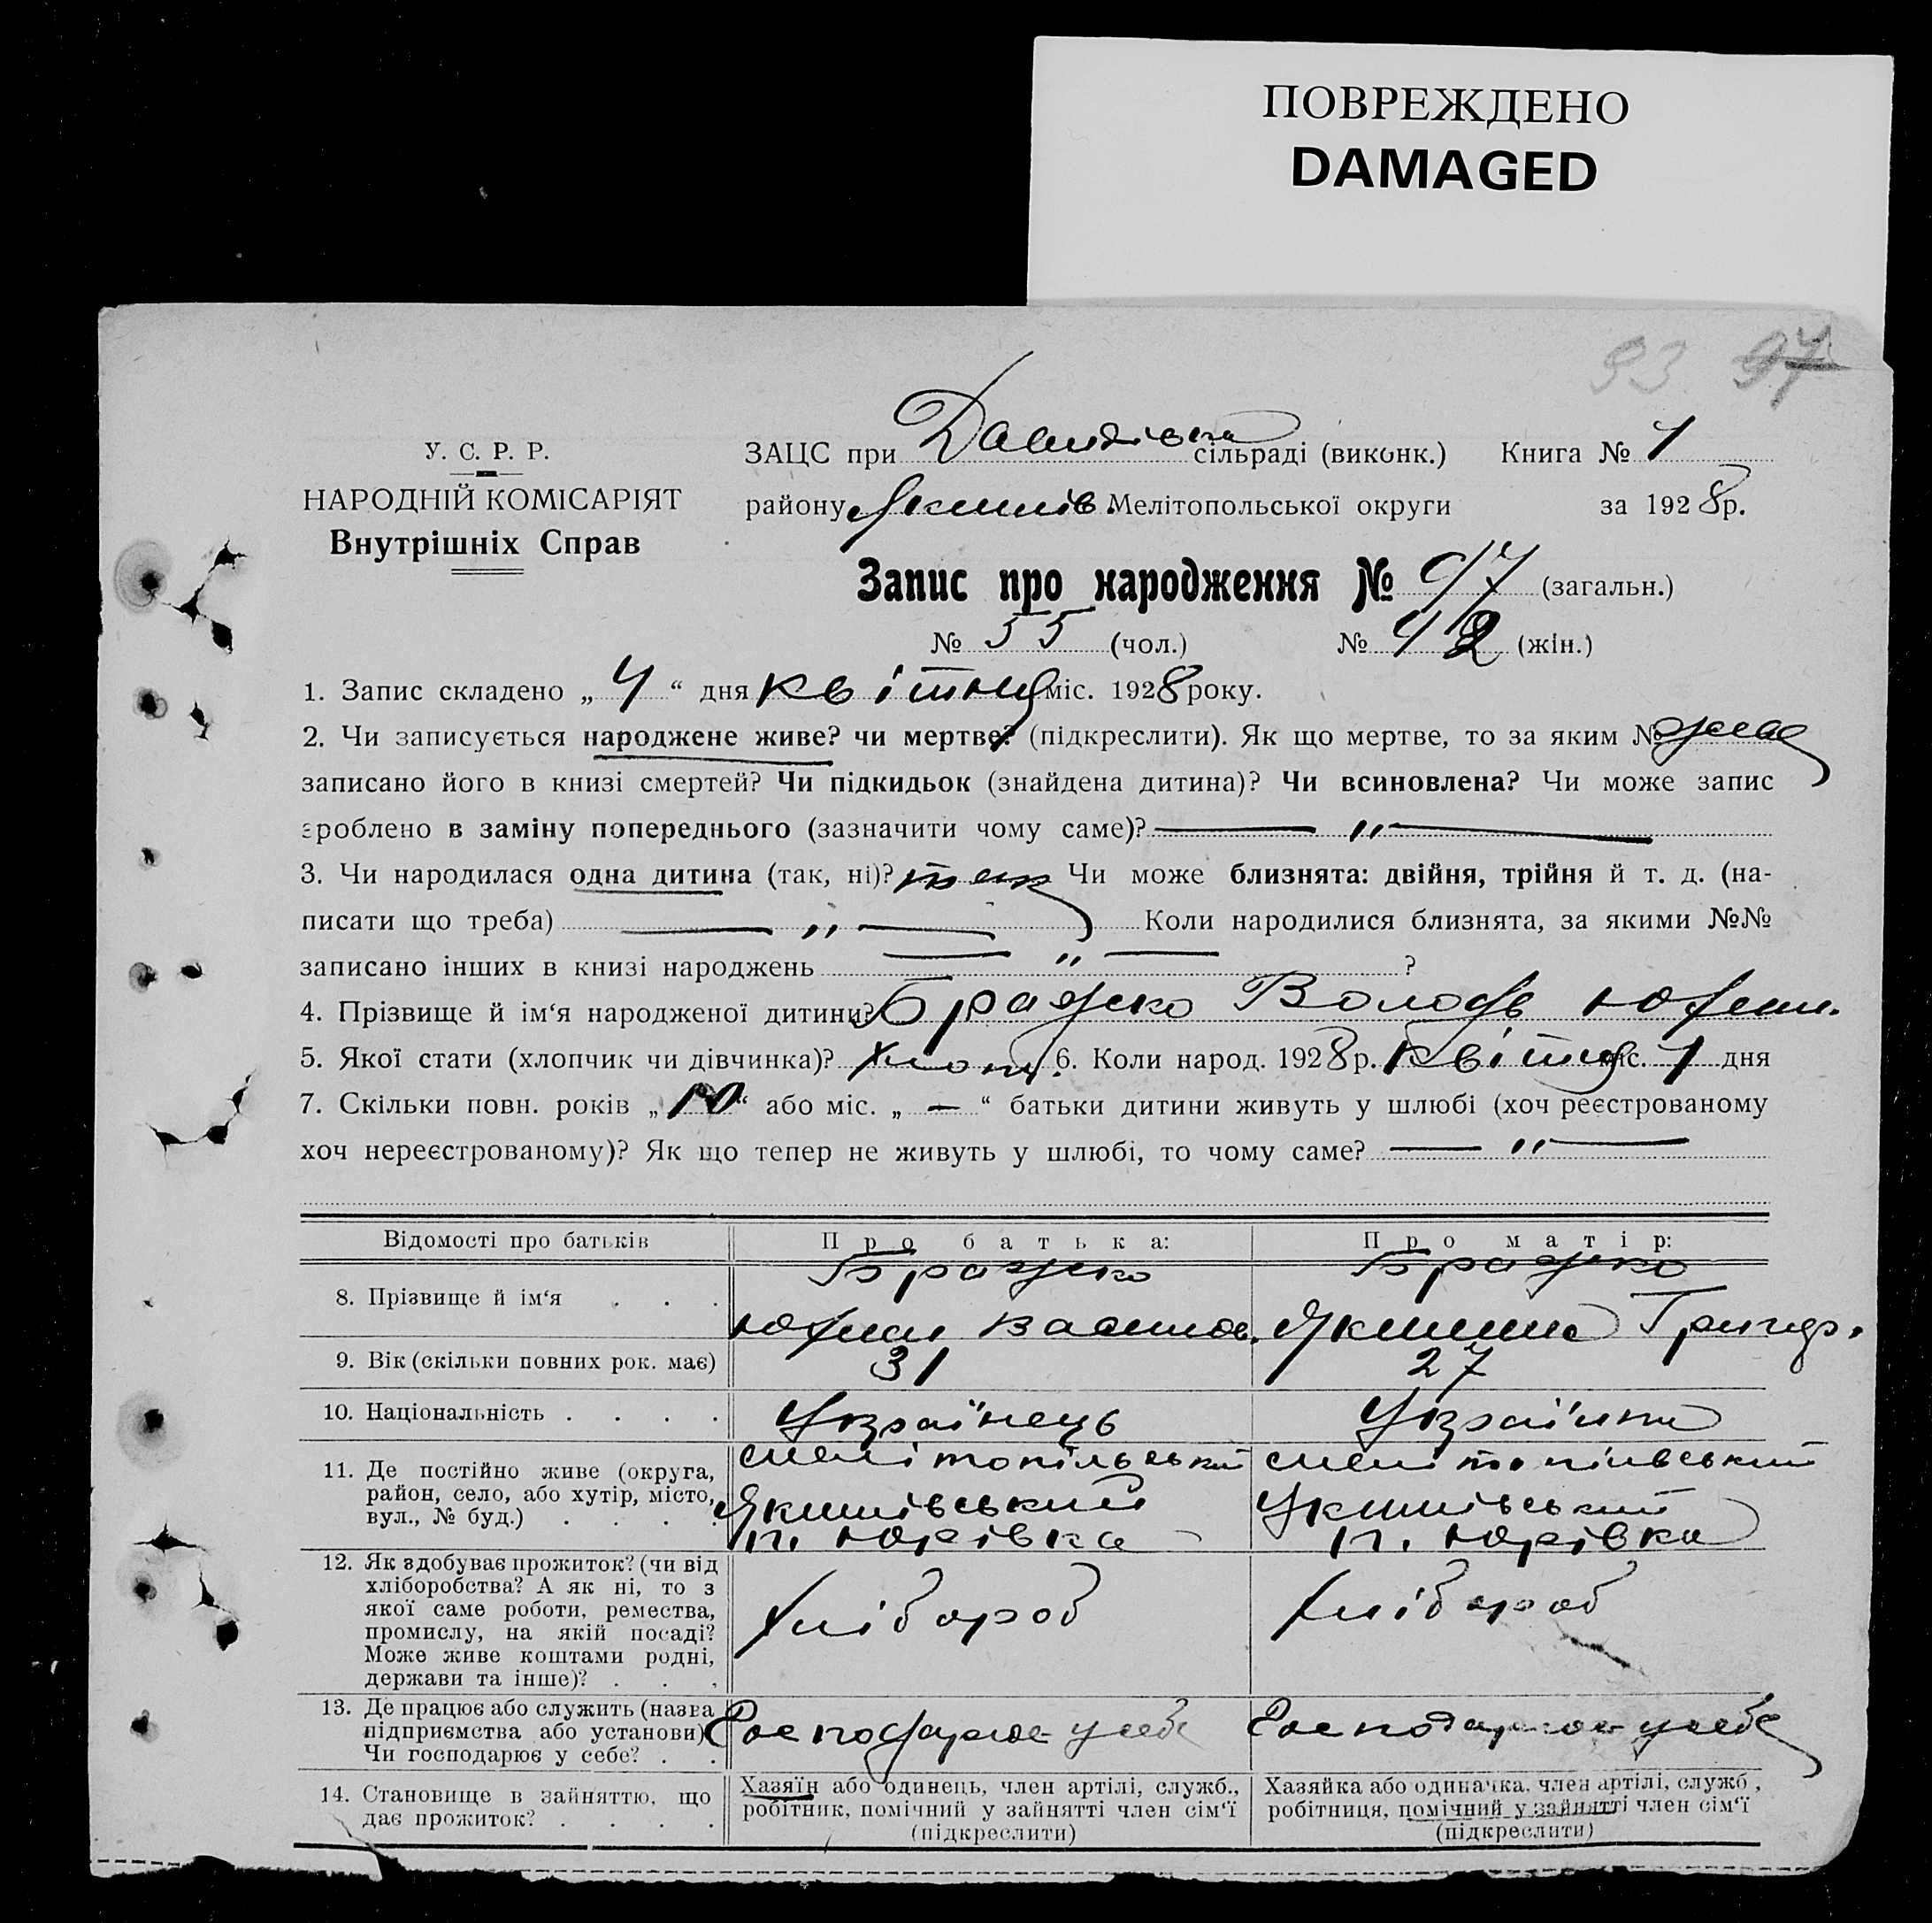 ПОВРЕЖДЕНО
DAMAGED
93 97
У. С. Р. Р.
НАРОДНІЙ КОМІСАРІЯТ
Внутрішніх Справ
ЗАЦС при Давидівск сільраді (виконк.) Книга № 1
району Якимів. Мелітопольської округи за 1928 р.
Запис про народження № 97 (загальн.)
№ 55 (чол.) № 42 (жін.)
1. Запис складено „ 4 “ дня квітня міс. 1928 року.
2. Чи записується народжене живе? чи мертве? (підкреслити). Як що мертве, то за яким № живе
записано його в книзі смертей? Чи підкидьок (знайдена дитина)? Чи всиновлена? Чи може запис
зроблено в заміну попереднього (зазначити чому саме)? — „ —
3. Чи народилася одна дитина (так, ні)? так Чи може близнята: двійня, трійня й т. д. (на-
писати що треба) — „ — Коли народилися близнята, за якими №№
записано інших в книзі народжень — „ — ?
4. Прізвище й ім‘я народженої дитини? Бражко Волод. Юхим.
5. Якої стати (хлопчик чи дівчинка)? хлопч. 6. Коли народ. 1928 р. квітня міс. 1 дня
7. Скільки повн. років „ 10 “ або міс. „ — “ батьки дитини живуть у шлюбі (хоч реєстрованому
хоч нереєстрованому)? Як що тепер не живуть у шлюбі, то чому саме? — „ —
Відомості про батьків Про батька: Про матір:
8. Прізвище й ім‘я . . . Бражко Бражко
Юхим Васильов. Якилина Григор.
9. Вік (скільки повних рок. має) 31 27
10. Національність . . . . Українець Українка
11. Де постійно живе (округа, мелітопільський мелітопільвський
район, село, або хутір, місто, Якимівський Якимівський
вул., № буд.) . . . . п. Юрівка п. Юрівка
12. Як здобуває прожиток? (чи від
хліборобства? А як ні, то з
якої саме роботи, ремества, хлібороб хлібороб
промислу, на якій посаді?
Може живе коштами родні,
держави та інше)? . . .
13. Де працює або служить (назва
підприємства або установи) Господарює у себе Господарює у себе
Чи господарює у себе? . .
14. Становище в зайняттю, що Хазяїн або одинець, член артілі, служб., Хазяйка або одиначка, член артілі, служб.,
дає прожиток? . . . . робітник, помічний у зайнятті член сім‘ї робітниця, помічний у зайнятті член сім‘ї
(підкреслити) (підкреслити)